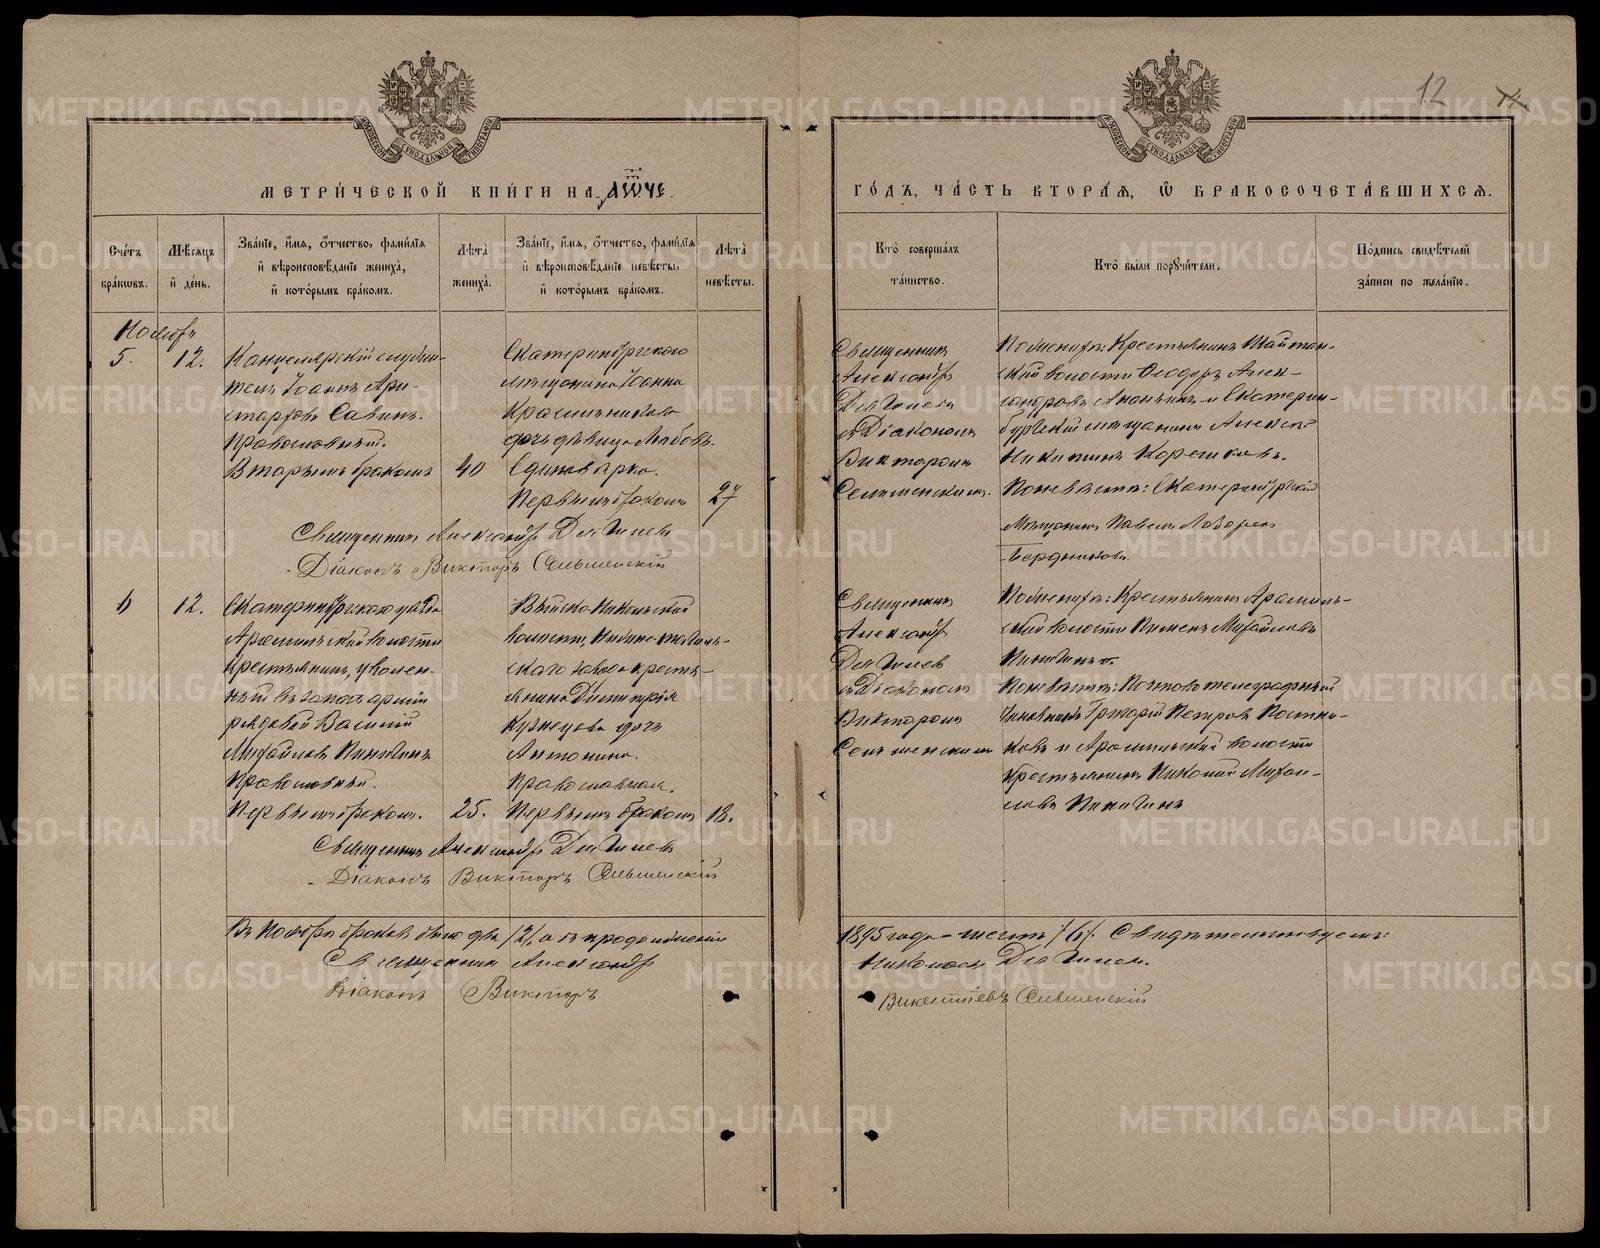 12
МЕТРИ́ЧЕСКОЙ КНИ́ГИ НА ҂АѾЧЕ
ГО́ДЪ, ЧА́СТЬ ВТОРА́Ѧ, Ѽ БРАКОСОЧЕТА́ВШИХСѦ.
Сче́тъ бра́кѡвъ.
Мѣ́сѧцъ и҆ де́нь.
Зва́нїе, и҆́мѧ, ѻ҆́тчество, фами́лїѧ
и҆ вѣроисповѣ́данїе жениха̀,
и҆ кото́рымъ бра́комъ.
Лѣта̀ жениха̀.
Зва́нїе, и҆́мѧ, ѻ҆́тчество, фами́лїѧ
и҆ вѣроисповѣ́данїе невѣ́сты,
и҆ кото́рымъ бра́комъ.
Лѣта̀ невѣ́сты.
Кто̀ соверша́лъ
та́инство.
Кто̀ бы́ли порꙋчи́тели.
По́дпись свидѣ́телей
за́писи по жела́нїю.
Ноябрь
5. 12.
Канцелярскій служи-
тель Іоаннъ Ари-
старховъ Савинъ.
Православный.
Вторымъ бракомъ
40
Екатеринбургскаго
мѣщанина Іоанна
Красильникова
дочь дѣвица Любовь.
Единоварка.
Первымъ бракомъ
27
Священникъ
Александръ
и Діакономъ
Викторомъ
По женихѣ: Крестьянинъ Шайтан-
ской волости Ѳеодоръ Алек-
сандровъ Ананьинъ и Екатерин-
бургскій мѣщанинъ Алексѣй
Никитинъ Корешковъ.
По невѣстѣ: Екатеринбургскій
мѣщанинъ Павелъ Лазаревъ
Бердниковъ.
Священникъ Александръ
Діаконъ Викторъ
6 12.
Екатеринбургскаго уѣзда
Арамильской волости
крестьянинъ, уволен-
ный въ запасъ арміи
рядовой Василій
Михайловъ Пинигинъ
Православный.
Первымъ бракомъ.
25.
Выйско-Никольской
волости, Нижне-Тагиль-
скаго завода кресть-
янина Димитрія
Кузнецова дочь
Антонина.
Православная.
Первымъ бракомъ
18.
Священникъ
Александръ
и Діаконъ
Викторомъ
По женихѣ: Крестьянинъ Арамиль-
ской волости Пименъ Михайловъ
Пинигинъ.
По невѣстѣ: Почтово-телеграфный
чиновникъ Григорій Петровъ Постни-
ковъ и Арамильской волости
крестьянинъ Николай Михай-
ловъ Пинигинъ
Священникъ Александръ
Діаконъ Викторъ
Въ Ноябрѣ браковъ было два /2/, а въ продолженіи
1895 года – шесть /6/. Свидѣтельствуемъ:
Священникъ Александръ
Николаевъ
Діаконъ Викторъ
Викентіевъ
METRIKI.GASO-URAL.RU